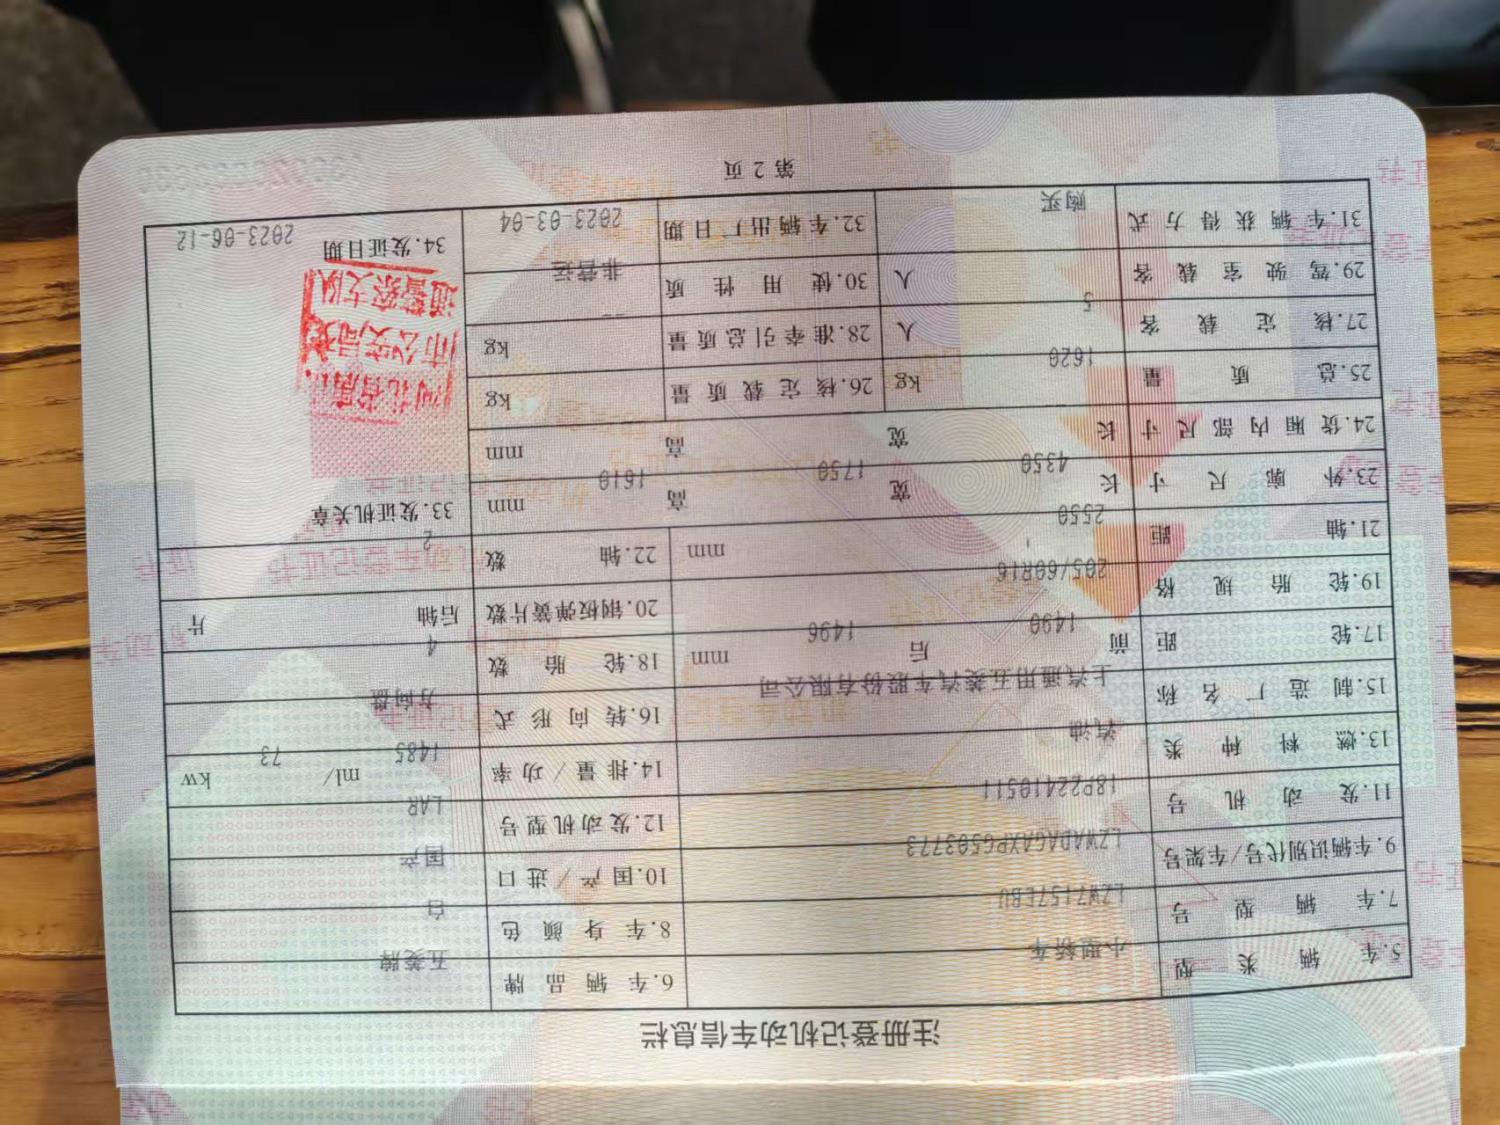 注册登记机动车信息栏
5.车辆类型 小型轿车 6.车辆品牌 五菱牌
7.车辆型号 LZW7157EBU 8.车身颜色 白
9.车辆识别代号/车架号 LZWADAGAXPG503773 10.国产/进口 国产
11.发动机号 18P22410511 12.发动机型号 LAR
13.燃料种类 汽油 14.排量/功率 1485 ml/ 73 kw
15.制造厂名称 上汽通用五菱汽车股份有限公司 16.转向形式 方向盘
17.轮距 前 1490 后 1496 mm 18.轮胎数 4
19.轮胎规格 205/60R16 20.钢板弹簧片数 后轴 片
21.轴距 2550 mm 22.轴数 2
23.外廓尺寸 长 4350 宽 1750 高 1610 mm
33.发证机关章
24.货厢内部尺寸 长 宽 高 mm
25.总质量 1620 kg 26.核定载质量 kg
27.核定载客 5 人 28.准牵引总质量 -- kg
29.驾驶室载客 人 30.使用性质 非营运
31.车辆获得方式 购买 32.车辆出厂日期 2023-03-04
河北省唐
市公安局交
通警察支队
34.发证日期 2023-06-12
第 2 页